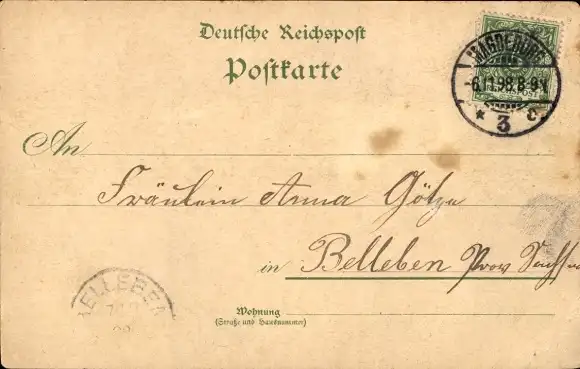 Deutsche Reichspost
Postkarte
MAGDEBURG
-6.11.98.8-9V.
* 3 c
An
Fräulein Anna Götze
in Belleben Prov Sachsen
BELLEBEN
Wohnung
(Straße und Hausnummer)